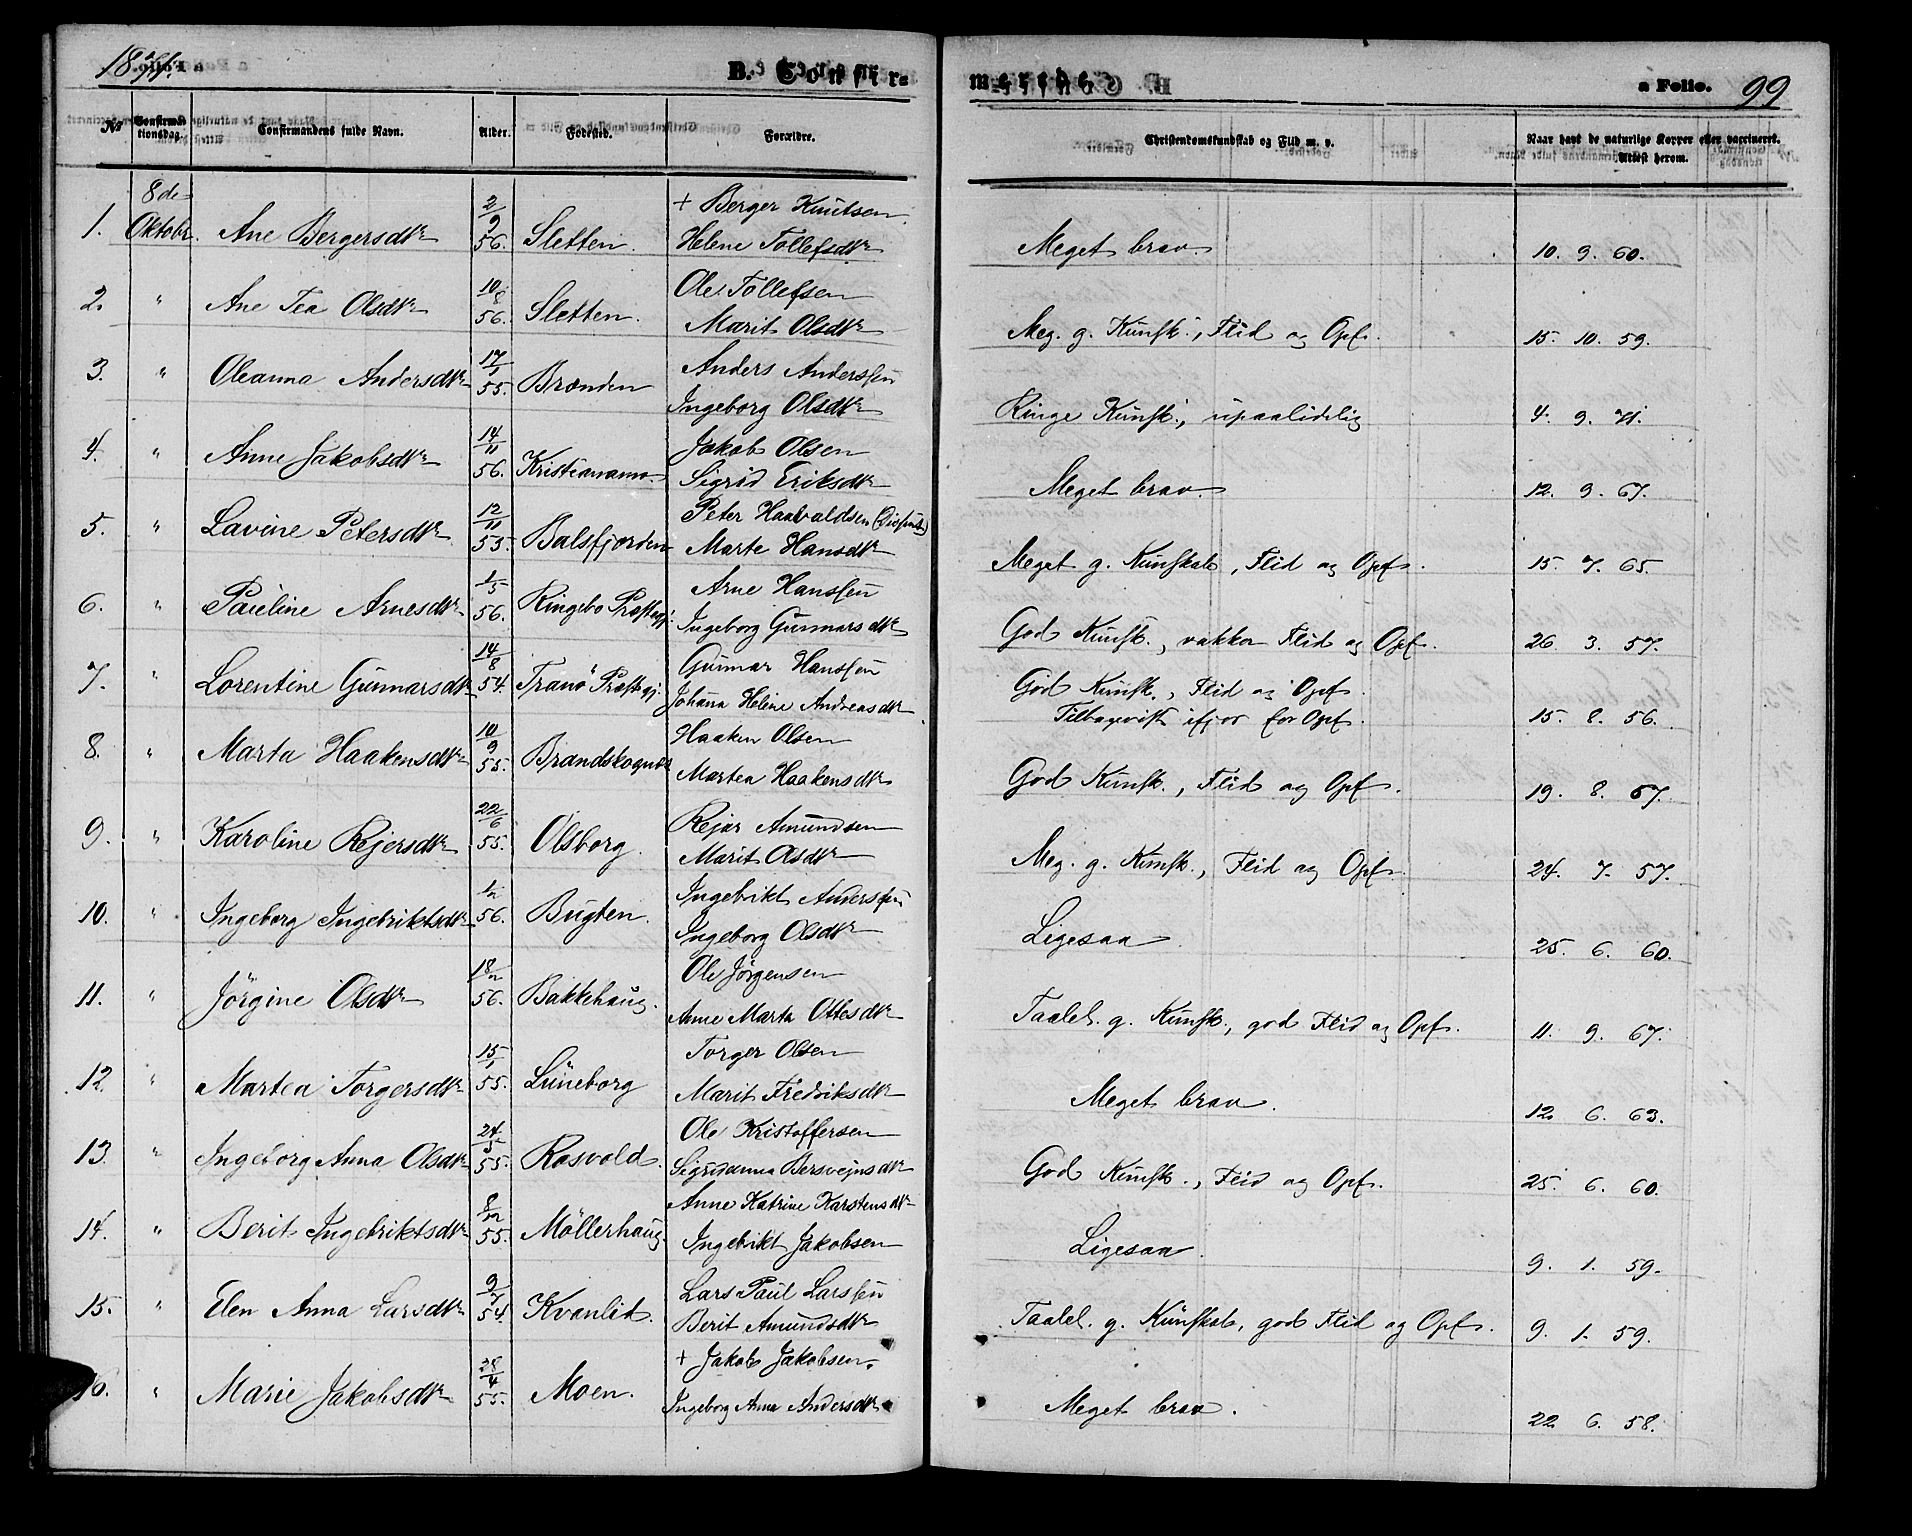 1871.
B. Confir-
merede
a Folio. 99
No Confirmationsdag. Confirmandens fulde Navn. Alder. Fødested. Forældre. Christendomskundskab og Flid m. v. Naar havt de naturlige Kopper eller vaccineret. Attest herom.
1. 8de Oktobr. Ane Bergersdtr 2/9 56. Sletten. + Berger Knutsen Helene Tollefsdtr Meget brav. 10. 9. 60.
2. " Ane Tea Olsdtr 10/8 56. Sletten. Ole Tollefsen Marit Olsdtr Meg. g. Kunsk., Flid og Opf. 15. 10. 59.
3. " Oleanna Andersdtr 17/1 55. Brænden Anders Anderssen Ingeborg Olsdtr Ringe Kunsk., upaalidelig 4. 9. 71.
4. " Anne Jakobsdtr 14/11 56. Kristianamo Jakob Olsen Sigrid Eriksdtr Meget brav. 12. 9. 67.
5. " Lavine Petersdtr 12/11 55. Balsfjorden Peter Haavaldsen Marte Hansdtr Meget g. Kunskab, Flid og Opf. 15. 7. 65.
6. " Pauline Arnesdtr 1/5 56. Ringebo Præstegj. Arne Hanssen Ingeborg Gunnarsdtr God Kunsk., vakker Flid og Opf. 26. 3. 57.
7. " Lorentine Gunnarsdtr 14/8 54. Tranö Præstegj. Gunnar Hanssen Johanna Helene Andreasdtr God Kunsk., Flid og Opf. Tilbagevist ifjor for Opf. 15. 8. 56.
8. " Marta Haakensdtr 10/9 55. Brandskognes Haaken Olsen Martea Haakensdtr God Kunsk., Flid og Opf. 19. 8. 67.
9. " Karoline Rejersdtr 22/6 55. Olsborg. Rejar Amundsen Marit Olsdtr Meg. g. Kunsk., Flid og Opf. 24. 7. 57.
10. " Ingeborg Ingebriktsdtr 1/2 56. Bugten. Ingebrikt Anderssen Ingeborg Olsdtr Ligesaa 25. 6. 60.
11. " Jörgine Olsdtr 18/2 56. Bakkehaug. Ole Jörgensen Anne Marta Ottesdtr Taalel. g. Kunsk., god Flid og Opf. 11. 9. 67.
12. " Martea Torgersdtr 15/1 55. Lüneborg Torger Olsen Marit Fredriksdtr Meget brav. 12. 6. 63.
13. " Ingeborg Anna Olsdtr 24/5 55. Rosvold. Ole Kristoffersen Sigridanna Bersvejnsdtr God Kunsk., Flid og Opf. 25. 6. 60.
14. " Berit Ingebriktsdtr 8/12 55. Möllerhaug. Anne Katrine Karstensdtr Ingebrikt Jakobsen Ligesaa. 9. 1. 59.
15. " Elen Anna Larsdtr 9/7 54. Kvanlid. Lars Paul Larssen Berit Amundsdtr Taalel. g. Kunskab, god Flid og Opf. 9. 1. 59.
16. " Marie Jakobsdtr 28/4 55. Moen. + Jakob Jakobsen. Ingeborg Anna Andersdtr Meget brav. 22 6. 58.